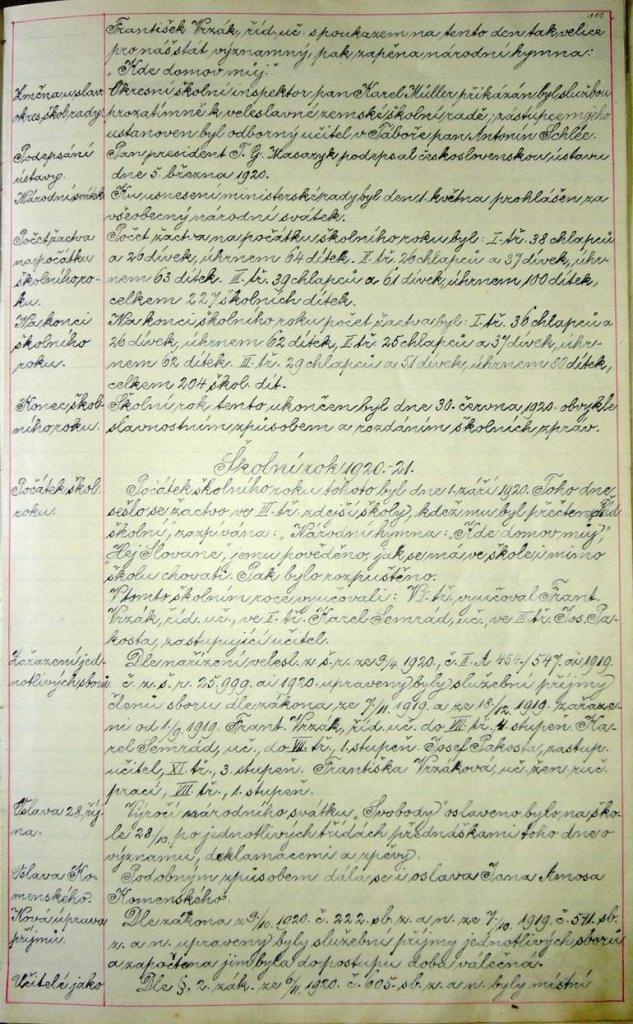 František Vrzák, říd. uč. s poukazem na tento den tak velice
pro náš stát významný, pak zapěna národní hymna:
"Kde domov můj."
Změna v slav. Okresní školní inspektor pan Karel Müller přikázán byl službou
okres. škol. rady. prozatímně k veleslavné zemské školní radě; zástupcem jeho
ustanoven byl odborný učitel v Táboře pan Antonín Schlée.
Podepsání Pan president T. G. Masaryk podepsal československou ústavu
ústavy. dne 5. března 1920.
Národní svátek Ku usnesení ministerské rady byl den 1. května prohlášen za
všeobecný národní svátek.
Počet žactva Počet žactva na počátku školního roku byl: I. tř. 38 chlapců
na počátku a 26 dívek, úhrnem 64 dítek. II. tř. 26 chlapců a 37 dívek, úhr-
školního ro- nem 63 dítek. III. tř. 39 chlapců a 61 dívek, úhrnem 100 dítek,
ku. celkem 227 školních dítek.
Na konci Na konci školního roku počet žactva byl: I. tř. 36 chlapců a
školního 26 dívek, úhrnem 62 dítek, II. tř. 25 chlapců a 37 dívek, úhr-
roku. nem 62 dítek. III. tř. 29 chlapců a 51 dívek, úhrnem 80 dítek,
celkem 204 škol. dít.
Konec škol- Školní rok tento ukončen byl dne 30. června 1920. obvykle
ního roku. slavnostním způsobem a rozdáním školních zpráv.
Školní rok 1920.-21.
Počátek škol. Počátek školního roku tohoto byl dne 1. září 1920. Toho dne
roku. sešlo se žactvo ve III. tř. zdejší školy, kdež mu byl přečten "Řád
školní", zazpívána: "Národní hymna: "Kde domov můj,"
"Hej Slované, jemu pověděno, jak se má ve škole i mimo
školu chovati. Pak bylo rozpuštěno.
V tomto školním roce vyučovali: V II. tř. vyučoval Frant.
Vrzák, říd. uč., ve I. tř. Karel Semrád, uč., ve III. tř. Jos. Pa-
kosta, zastupující učitel.
Zařazení jed- Dle nařízení velesl. z. š. r. ze 9/4 1920, č. II. A 454/547. ai 1919.
notlivých sborů č. z. š. r. 25.999. ai 1920. upraveny byly služební příjmy
členů sboru dle zákona ze 7/11. 1919. a ze 18/12. 1919. Zařaze-
ni od 1./9. 1919. Frant. Vrzák, říd. uč. do VII. tř., 4. stupeň. Ka-
rel Semrád, uč., do VIII. tř., 1. stupeň. Josef Pakosta, zastup.
učitel, XI. tř., 3. stupeň. Františka Vrzáková, uč. žen. ruč.
prací, VII. tř., 1. stupeň.
Oslava 28. říj- Výročí národního svátku "Svobody" oslaveno bylo na ško-
na. le 28/10. po jednotlivých třídách přednáškami toho dne o
významu, deklamacemi a zpěvy.
Oslava Ko- Podobným způsobem dála se i oslava Jana Amosa
menského. Komenského.
Nová úprava Dle zákona z 9./10. 1920. č. 222. sb. z. a n. ze 7./10. 1919. č. 541. sb.
příjmů. z. a n. upraveny byly služební příjmy jednotlivých sborů
a započtena jim byla do postupu doba válečná.
Učitelé jako Dle §. 2. zák. ze 6/11. 1920. č. 605. sb. z. a n. byly místní